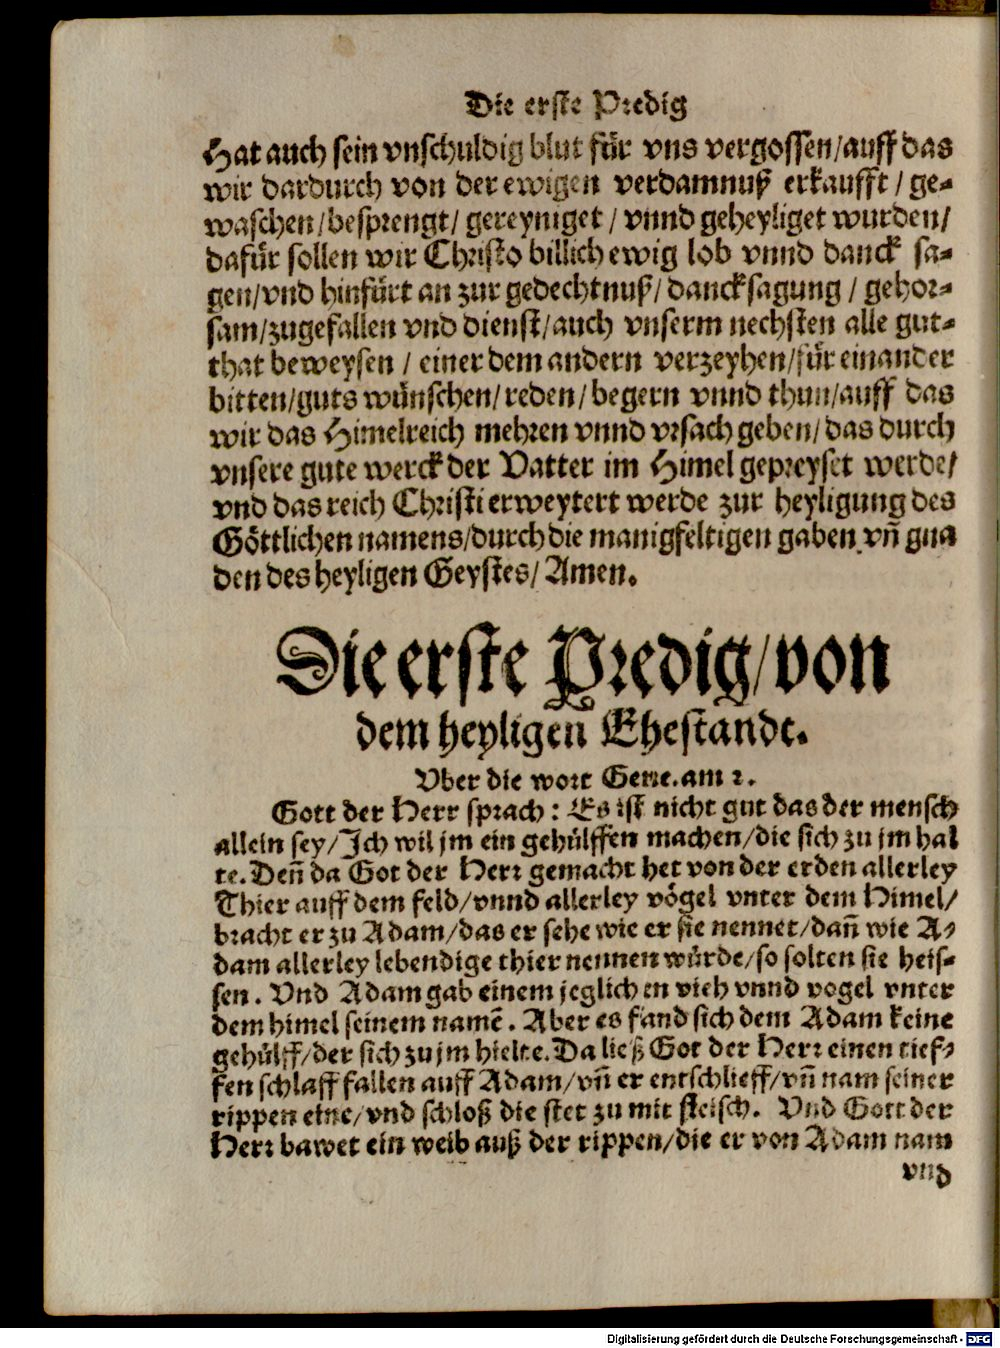 Die erste Predig
Hat auch sein vnschuldig blut für vns vergossen/auff das
wir dardurch von der ewigen verdamnuß erkaufft / ge-
waschen/besprengt/ gereyniget / vnnd geheyliget wurden/
dafür sollen wir Christo billich ewig lob vnnd danck sa-
gen/vnd hinfürt an zur gedechtnuß/ dancksagung / gehor-
sam/zugefallen vnd dienst/auch vnserm nechsten alle gut-
that beweysen / einer dem andern verzeyhen/für einander
bitten/guts wünschen/ reden/ begern vnnd thun/auff das
wir das Himelreich mehren vnnd vrsach geben/ das durch
vnsere gute werck der Vatter im Himel gepreyset werde/
vnd das reich Christi erweytert werde zur heyligung des
Göttlichen namens/durch die manigfeltigen gaben vñ gna
den des heyligen Geystes/ Amen.
Die erste Predig/von
dem heyligen Ehestandt.
Vber die wort Gene. am 2.
Gott der Herr sprach: Es ist nicht gut das der mensch
allein sey/Ich wil jm ein gehülffen machen/die sich zu jm hal
te. Deñ da Got der Herr gemacht het von der erden allerley
Thier auff dem feld/vnnd allerley vögel vnter dem Himel/
bracht er zu Adam/das er sehe wie er sie nennet/dañ wie A-
dam allerley lebendige thier nennen würde/so solten sie heis-
sen. Vnd Adam gab einem jeglichen vieh vnnd vogel vnter
dem himel seinem namē. Aber es fand sich dem Adam keine
gehülff/der sich zu jm hielte. Da ließ Got der Herr einen tief-
fen schlaff fallen auff Adam/vñ er entschlieff/vñ nam seiner
rippen eine/vnd schloß die stet zu mit fleisch. Vnd Gott der
Herr bawet ein weib auß der rippen/die er von Adam nam
vnd
Digitalisierung gefördert durch die Deutsche Forschungsgemeinschaft - DFG